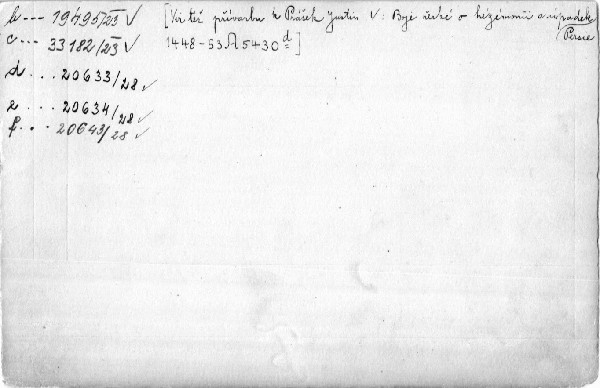 b --- 19495/23 √ [Viz též přívazbu k Prášek Justin V: Boje řecké o hegemonii a úpadek Persie
c --- 33182/23 √ 1448-53 5430 d]
d ... 20633/28 √
e ... 20634/28 √
f ... 20643/28 √